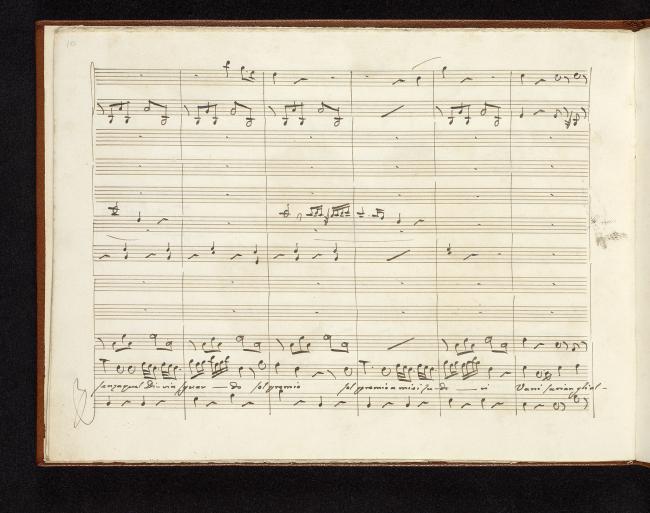 senza quel Di-vin guar — do sol premio sol premio a miei su-do — ri Vani sarian gli al-